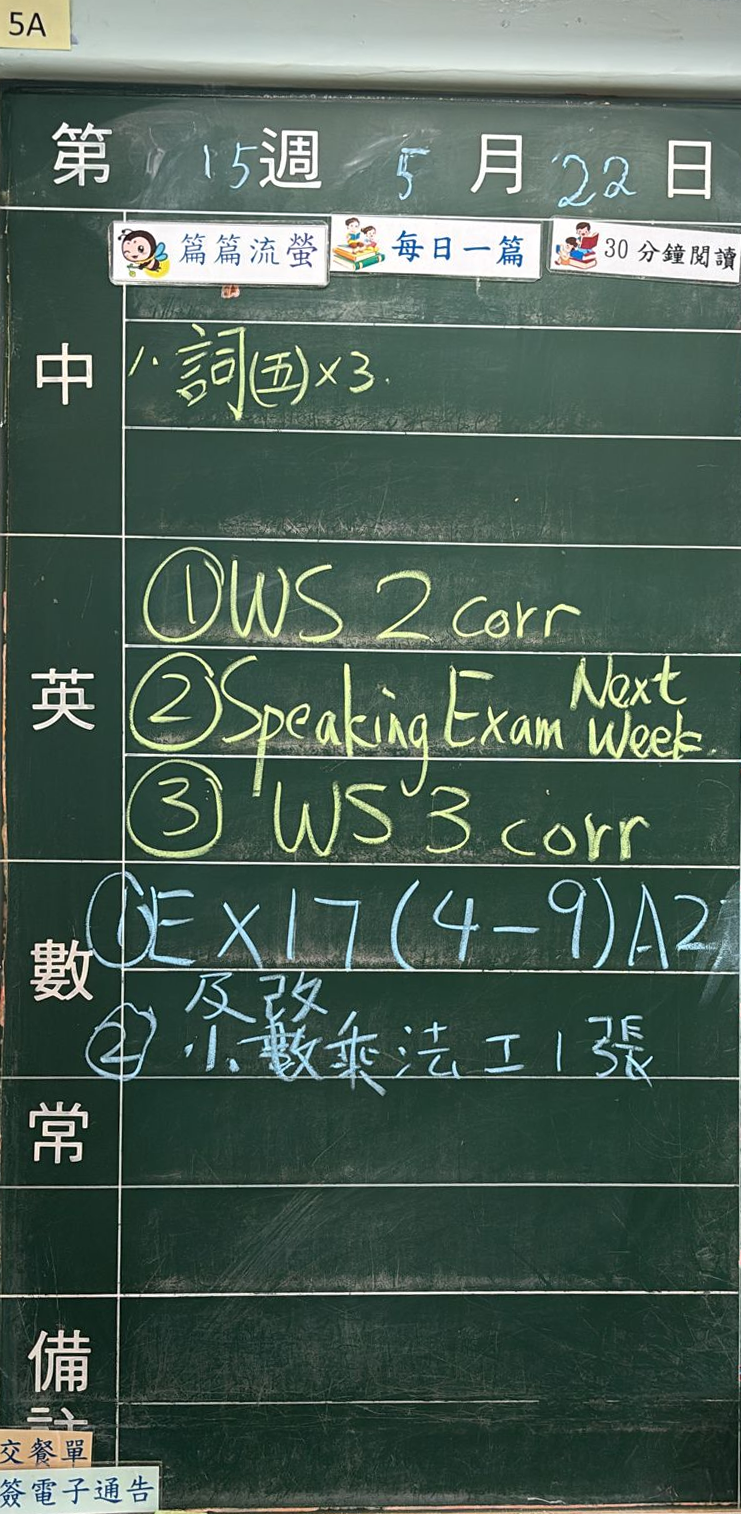 5A
第 15 週 5 月 22 日
篇篇流螢 每日一篇 30分鐘閱讀
中
1. 詞(五)×3.
英
①WS 2 corr
②Speaking Exam Next Week
③ WS 3 corr
數
①EX17(4-9)A2
及改
② 小數乘法工1張
常
備註
交餐單
簽電子通告